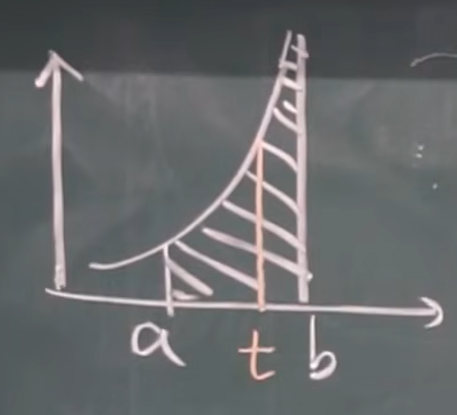 a t b